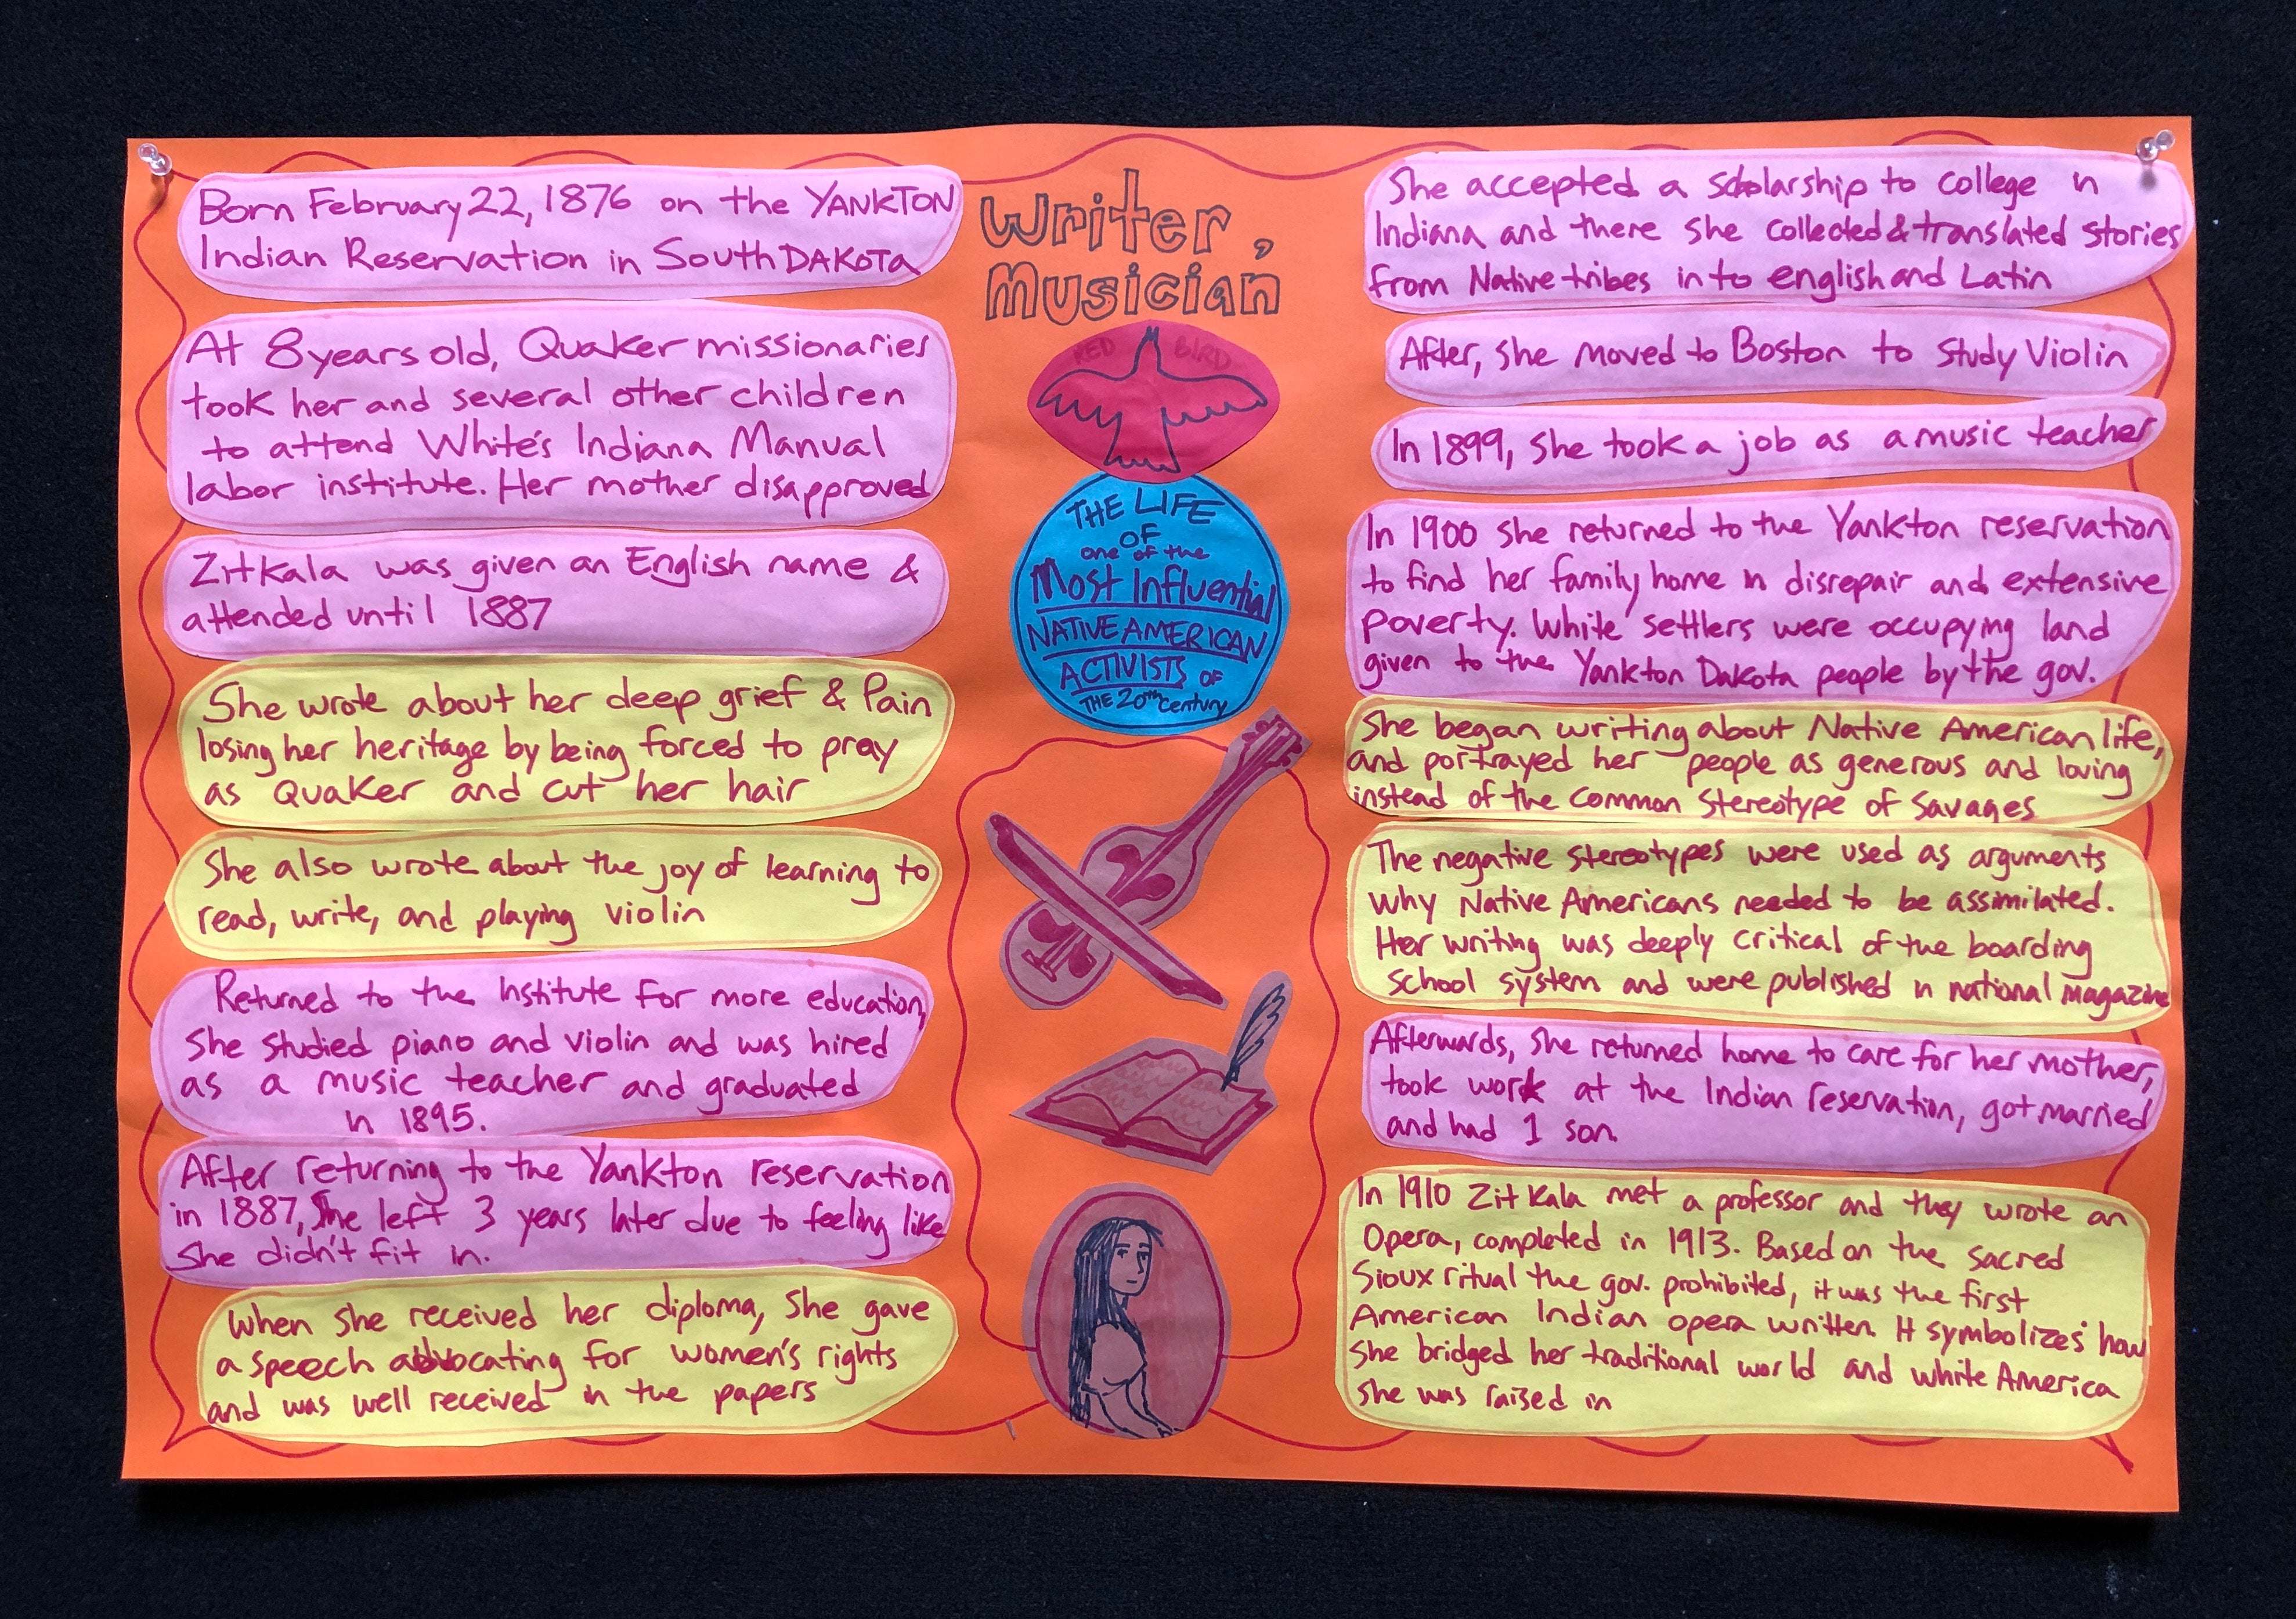 Born February 22, 1876 on the YANKTON
Indian Reservation in South DAKOTA
At 8 years old, Quaker missionaries
took her and several other children
to attend White's Indiana Manual
labor institute. Her mother disapproved
Zitkala was given an English name &
attended until 1887
She wrote about her deep grief & Pain
losing her heritage by being forced to pray
as Quaker and cut her hair
She also wrote about the joy of learning to
read, write, and playing violin
Returned to the Institute for more education,
She studied piano and violin and was hired
as a music teacher and graduated
in 1895.
After returning to the Yankton reservation
in 1887, She left 3 years later due to feeling like
She didn't fit in.
When She received her diploma, She gave
a speech advocating for women's rights
and was well received in the papers
Writer,
Musician
RED BIRD
THE LIFE
OF
one of the
Most Influential
NATIVE AMERICAN
ACTIVISTS OF
THE 20th Century
She accepted a scholarship to college in
Indiana and there She collected & translated Stories
from Native tribes into english and Latin
After, She moved to Boston to study Violin
In 1899, She took a job as a music teacher
In 1900 She returned to the Yankton reservation
to find her family home in disrepair and extensive
poverty. White settlers were occupying land
given to the Yankton Dakota people by the gov.
She began writing about Native American life,
and portrayed her people as generous and loving
instead of the common Stereotype of Savages
The negative stereotypes were used as arguments
why Native Americans needed to be assimilated.
Her writing was deeply critical of the boarding
School system and were published in national magazine
Afterwards, She returned home to care for her mother,
took work at the Indian reservation, got married
and had 1 son.
In 1910 Zitkala met a professor and they wrote an
Opera, completed in 1913. Based on the sacred
Sioux ritual the gov. prohibited, it was the first
American Indian opera written. It symbolizes how
She bridged her traditional world and white America
She was raised in